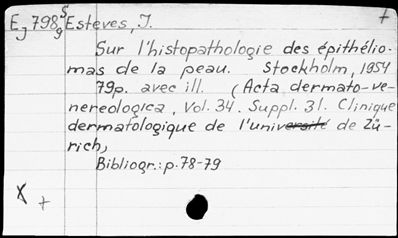 Ej 798 gS Esteves, J. +
Sur l'histopathologie des épithélio-
mas de la peau. Stockholm, 1954
79p. avec ill. (Acta dermato-ve-
nereologica, Vol. 34. Suppl. 31. Clinique
dermatologique de l'université de Zü-
rich)
Bibliogr.: p. 78-79
X +